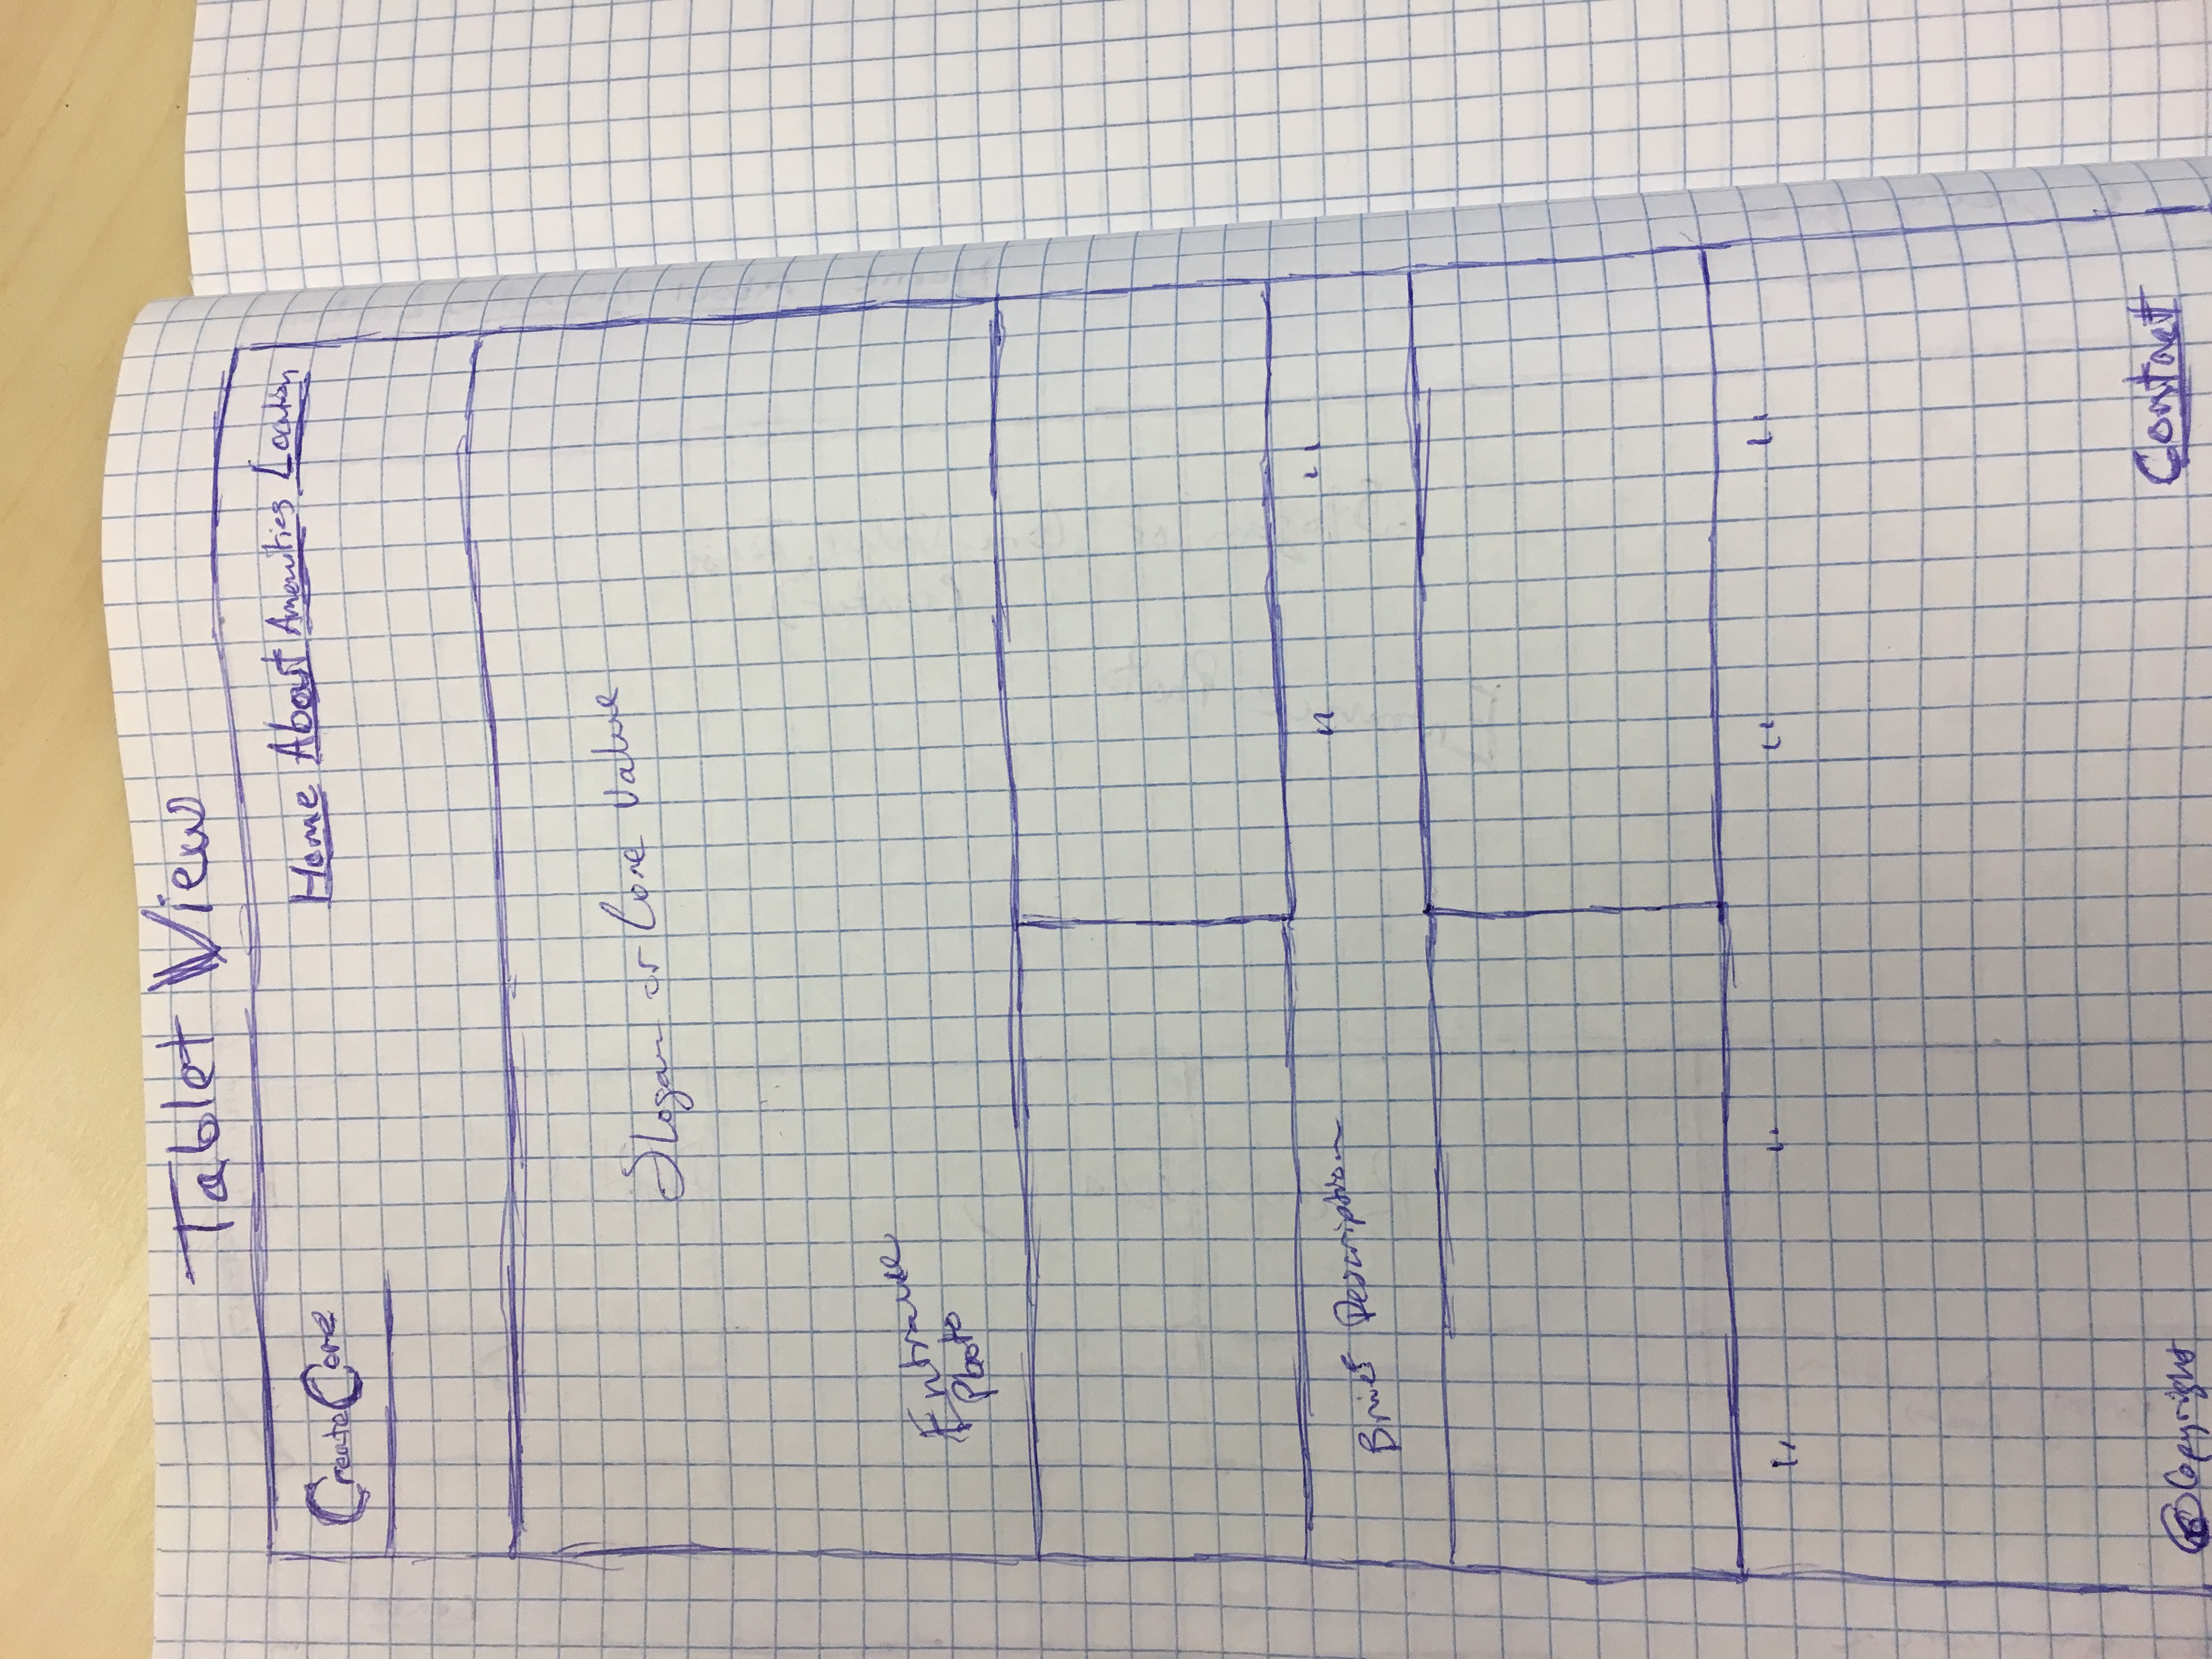 Tablet View
CreateCore
Home About Amenities Location
Slogan or Core Value
Entrance
Photo
Brief Description
" "
" " " "
© Copyright
Contact